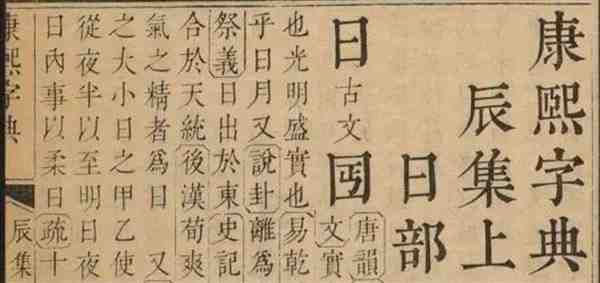 康熙字典
辰集上
日部
日古文囸唐韻
文實
也光明盛實也易乾
乎日月又說卦離爲
祭義日出於東史記
合於天統後漢荀爽
氣之精者爲日 又
之大小日之甲乙使
從夜半以至明日夜
日內事以柔日疏十
康熙字典 辰集